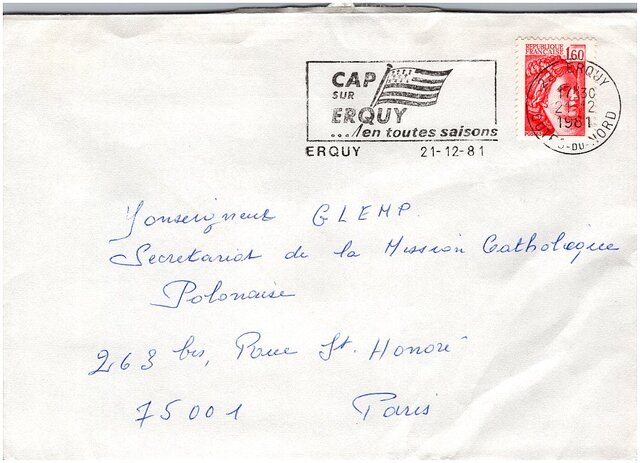 REPUBLIQUE
FRANCAISE
1,60
CAP
SUR
ERQUY
.../en toutes saisons
ERQUY 21-12-81
ERQUY
17H30
21-12
1981
COTES-DU-NORD
Monseigneur GLEMP.
Secretariat de la Mission Catholique
Polonaise
263 bis, Rue St. Honoré
75001 Paris